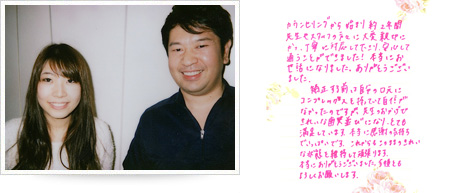 カウンセリングから始まり約2年間
先生やスタッフの方々に大変親切に
かつ、丁寧に対応して下さり、安心して
通うことができました！本当にお
世話になりました。ありがとうござい
ました。
矯正する前は自分の口元に
コンプレックスを持っていて自信が
なかったのですが、先生のおかげで
きれいな歯並びになり、とても
満足しています。本当に感謝の気持ち
でいっぱいです。これからもこのままのきれい
な状態を維持して頑張ります。
本当にありがとうございました。今後とも
よろしくお願いします。